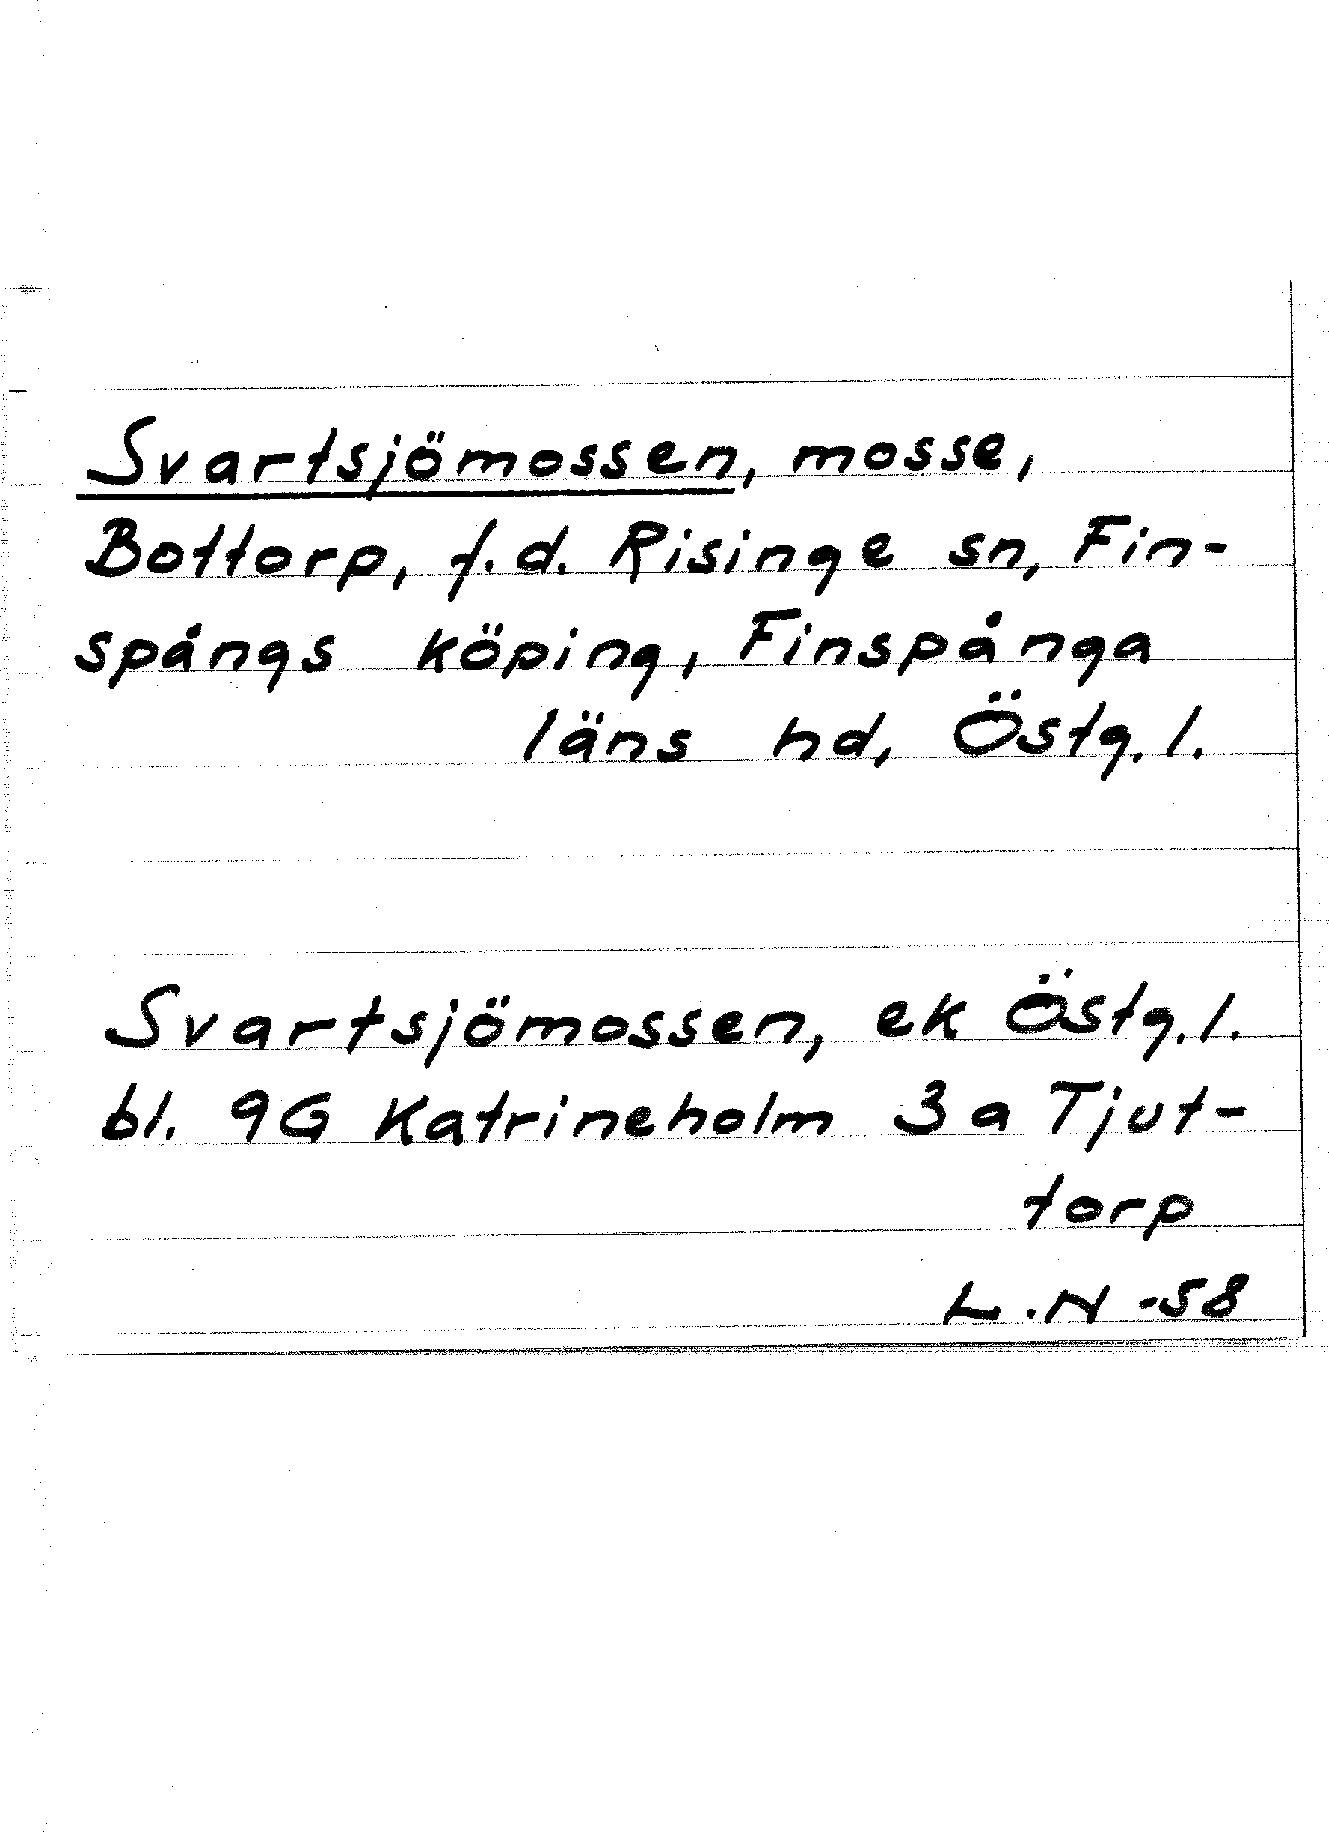 Svartsjömossen, mosse,
Bottorp, f.d. Risinge sn, Fin-
spångs köping, Finspånga
läns hd, Östg. l.
Svartsjömossen, ek Östg. l.
bl. 9G Katrineholm 3a Tjut-
torp
L.N -58